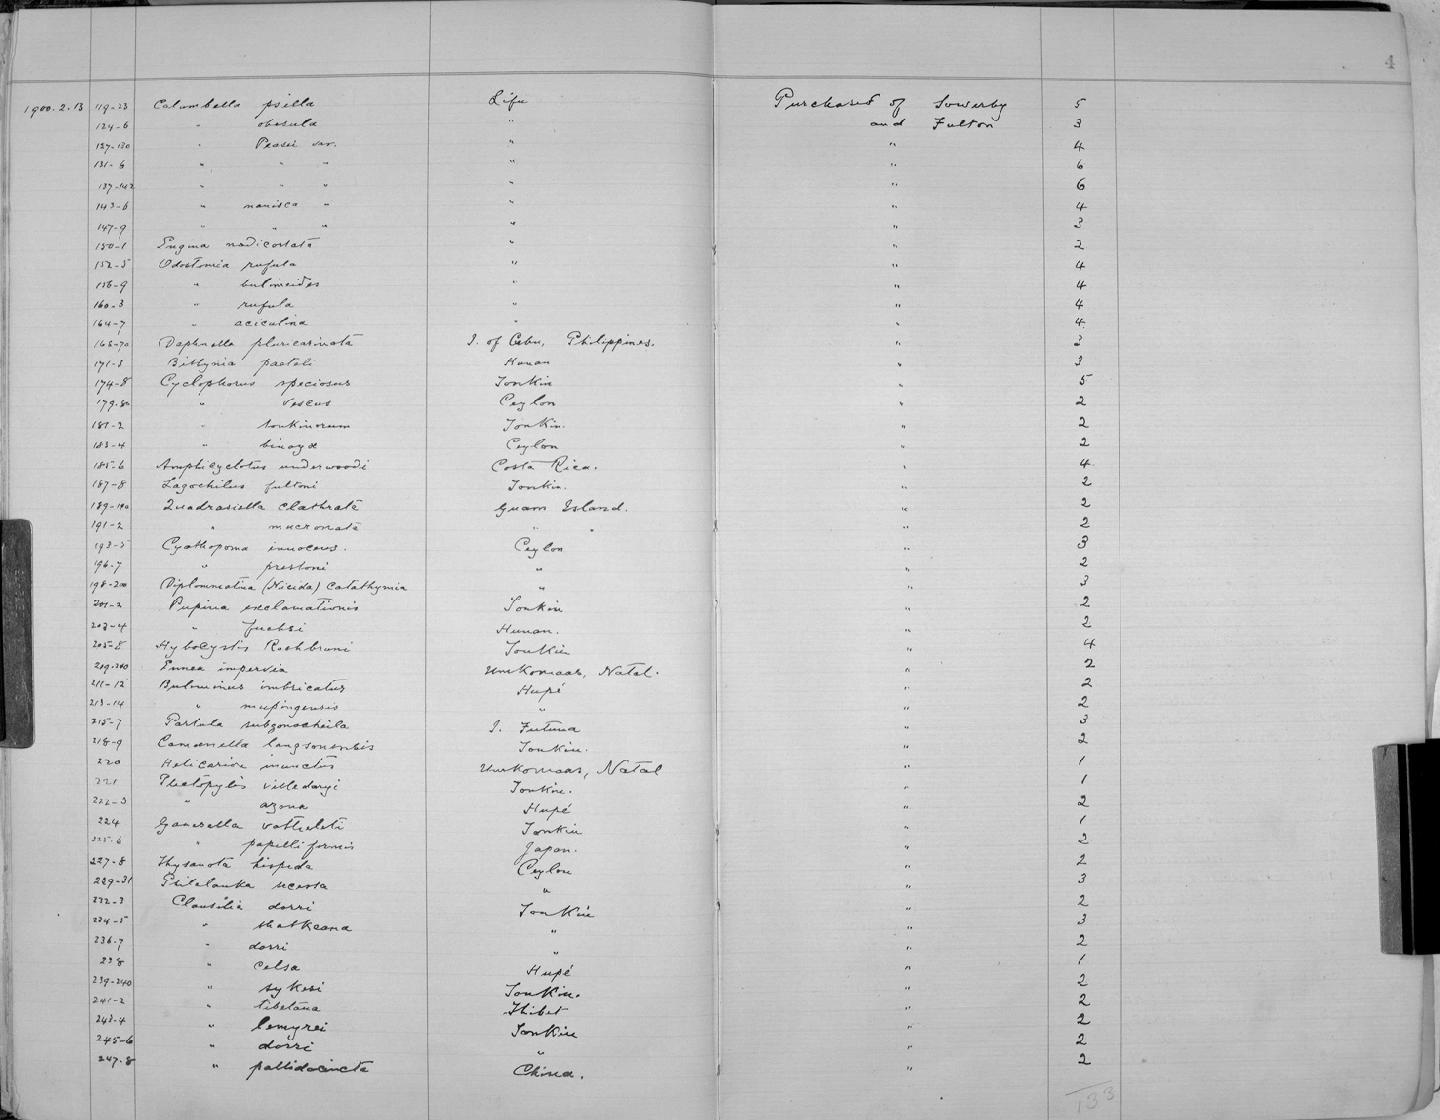 4
1900.2.13 119-23 Columbella psilla Lifu Purchased of Sowerby 5
124-6 " obesula " and Fulton 3
127-130 " Peasei var. " " 4
131-6 " " " " " 6
137-142 " " " " " 6
143-6 " " " " 4
147-9 " " " " " 3
150-1 Engina nodicostata " " 2
152-5 Odostomia rufula " " 4
156-9 " bulimoides " " 4
160-3 " rufula " " 4
164-7 " aciculina " " 4
168-70 Daphnella pluricarinata I. of Cebu, Philippines. " 3
171-3 Bithynia paeteli Hunan " 3
174-8 Cyclophorus speciosus Tonkin " 5
179-80 " vescus Ceylon " 2
181-2 " tonkinorum Tonkin. " 2
183-4 " binoyæ Ceylon " 2
185-6 Amphicyclotus underwoodi Costa Rica. " 4
187-8 Lagochilus fultoni Tonkin. " 2
189-190 Quadrasiella clathrata Guam Island. " 2
191-2 " mucronata " " " 2
193-5 Cyathopoma innocens. Ceylon " 3
196-7 " prestoni " " 2
198-200 Diplommatina (Nicida) catathymia " " 3
201-2 Pupina exclamationis Tonkin " 2
203-4 " fuchsi Hunan. " 2
205-8 Hybocystis Rochbruni Tonkin " 4
209-210 Ennea impervia Umkomaas, Natal. " 2
211-12 Buliminus imbricatus Hupé " 2
213-14 " mupingensis " " 2
215-7 Partula subgonocheila I. Futuna " 3
218-9 Camaenella langsonensis Tonkin. " 2
220 Helicarion inunctus Umkomaas, Natal " 1
221 Plectopylis villedaryi Tonkin. " 1
222-3 " azona Hupé " 2
224 Ganesella Tonkin " 1
225-6 " papilliformis Japan. " 2
227-8 Thysanota hispida Ceylon " 2
229-31 Philalanka secessa " " 3
232-3 Clausilia dorri Tonkin " 2
234-5 " thatkeana " " 3
236-7 " dorri " " 2
238 " celsa Hupé " 1
239-240 " sykesi Tonkin. " 2
241-2 " tibetana Thibet " 2
243-4 " lemyrei Tonkin " 2
245-6 " dorri " " 2
247-8 " pallidocincta China. " 2
133